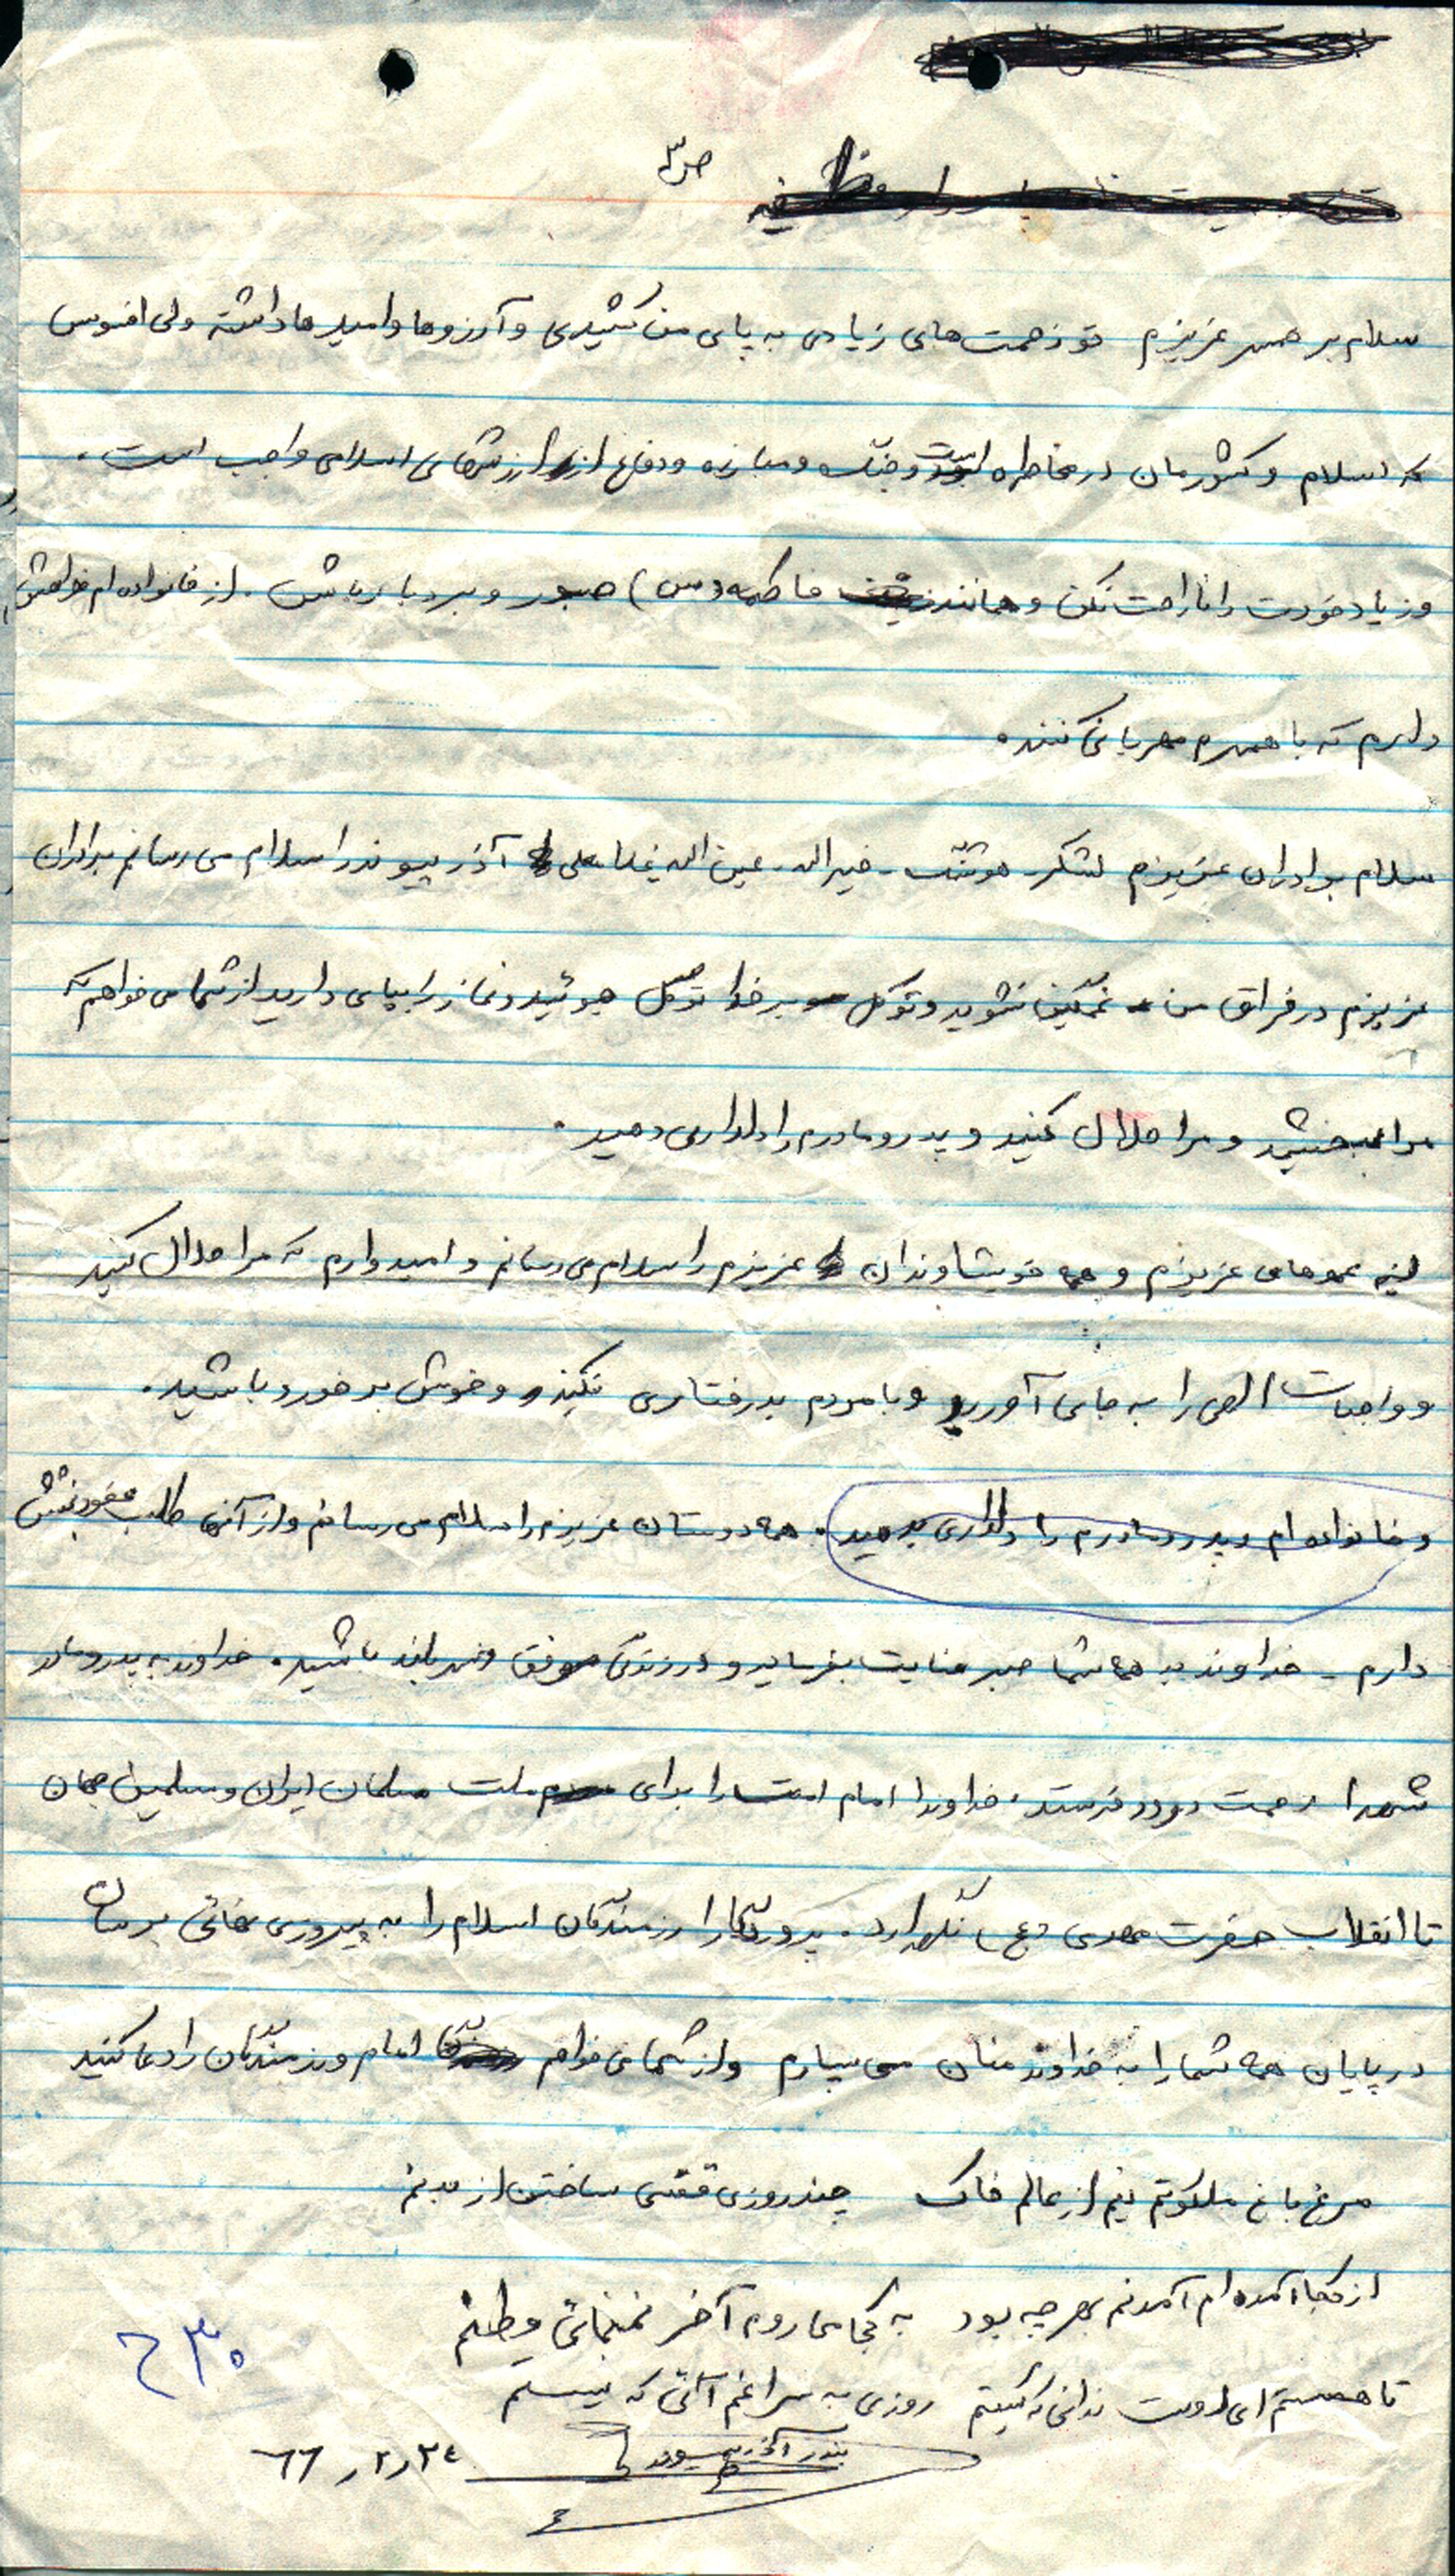 ص ۳
سلام بر همسر عزیزم تو زحمت های زیادی به پای من کشیدی و آرزوها و امیدها داشته ولی افسوس
که اسلام و کشورمان در مخاطره است و جنگ و مبارزه و دفاع از ارزشهای اسلامی واجب است.
و زیاد خودت را ناراحت نکن و همانند فاطمه (س) صبور و بردبار باش. از خانواده ام خواهش
دارم که با همسرم مهربانی کنند.
سلام برادران عزیزم لشکر - هوشنگ - خیراله - عین اله - آذرپیوند را سلام می رسانم برادران
عزیزم در فراق من غمگین نشوید و توکل بر خدا توکل جوئید و نماز را بپای دارید از شما می خواهم که
مرا ببخشید و مرا حلال کنید و پدر و مادرم را دلداری دهید.
کلیه عموهای عزیزم و همه خویشاوندان عزیزم را سلام می رسانم و امیدوارم که مرا حلال کنید
و واجبات الهی را به جای آورید و با مردم بدرفتاری نکنید و خوش برخورد باشید.
و خانواده ام و پدر و مادرم را دلداری بدهید. همه دوستان عزیزم را سلام می رسانم و از آنها طلب عفو و بخشش
دارم - خداوند به همه شما صبر عنایت بفرماید و در زندگی موفق و سربلند باشید. خداوند به پدر و مادر
شهدا رحمت و درود فرستد. خداوندا امام امت را برای ملت مسلمان ایران و مسلمین جهان
تا انقلاب حضرت مهدی (عج) نگهدارد. پروردگارا رزمندگان اسلام را به پیروزی نهائی برسان
در پایان همه شما را به خداوند منان می سپارم و از شما می خواهم امام و رزمندگان را دعا کنید
مرغ باغ ملکوتم نیم از عالم خاک چند روزی قفسی ساختن از بدنم
از کجا آمده ام آمدنم بهر چه بود به کجا می روم آخر ننمائی وطنم
تا هستم ای دوست ندانی که کیستم روزی به سراغم آئی که نیستم
آذرپیوند
۶۶ / ۲ / ۲۴
ح ۳۰